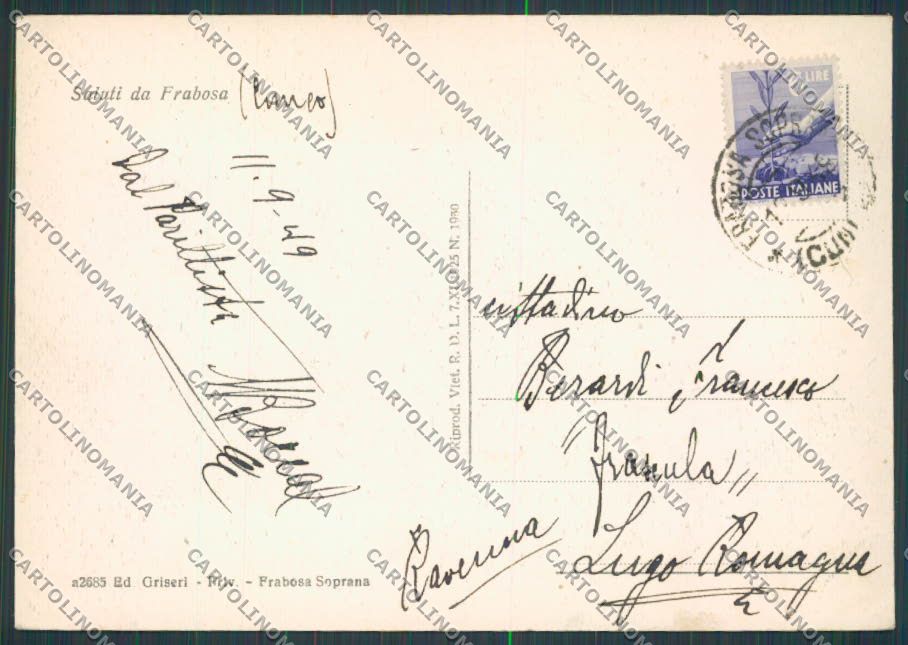 Saluti da Frabosa (Cuneo)
11.9.49
Dal Parittista
Riprod. Viet. R. D. L. 7.XI.1925 N. 1950
LIRE
POSTE ITALIANE
FRABOSA SOPR
(CUN
cittadino
Berardi Francesco
"Franula"
Lugo Romagna
Ravenna
a2685 Ed Griseri - Priv. - Frabosa Soprana
CARTOLINOMANIA